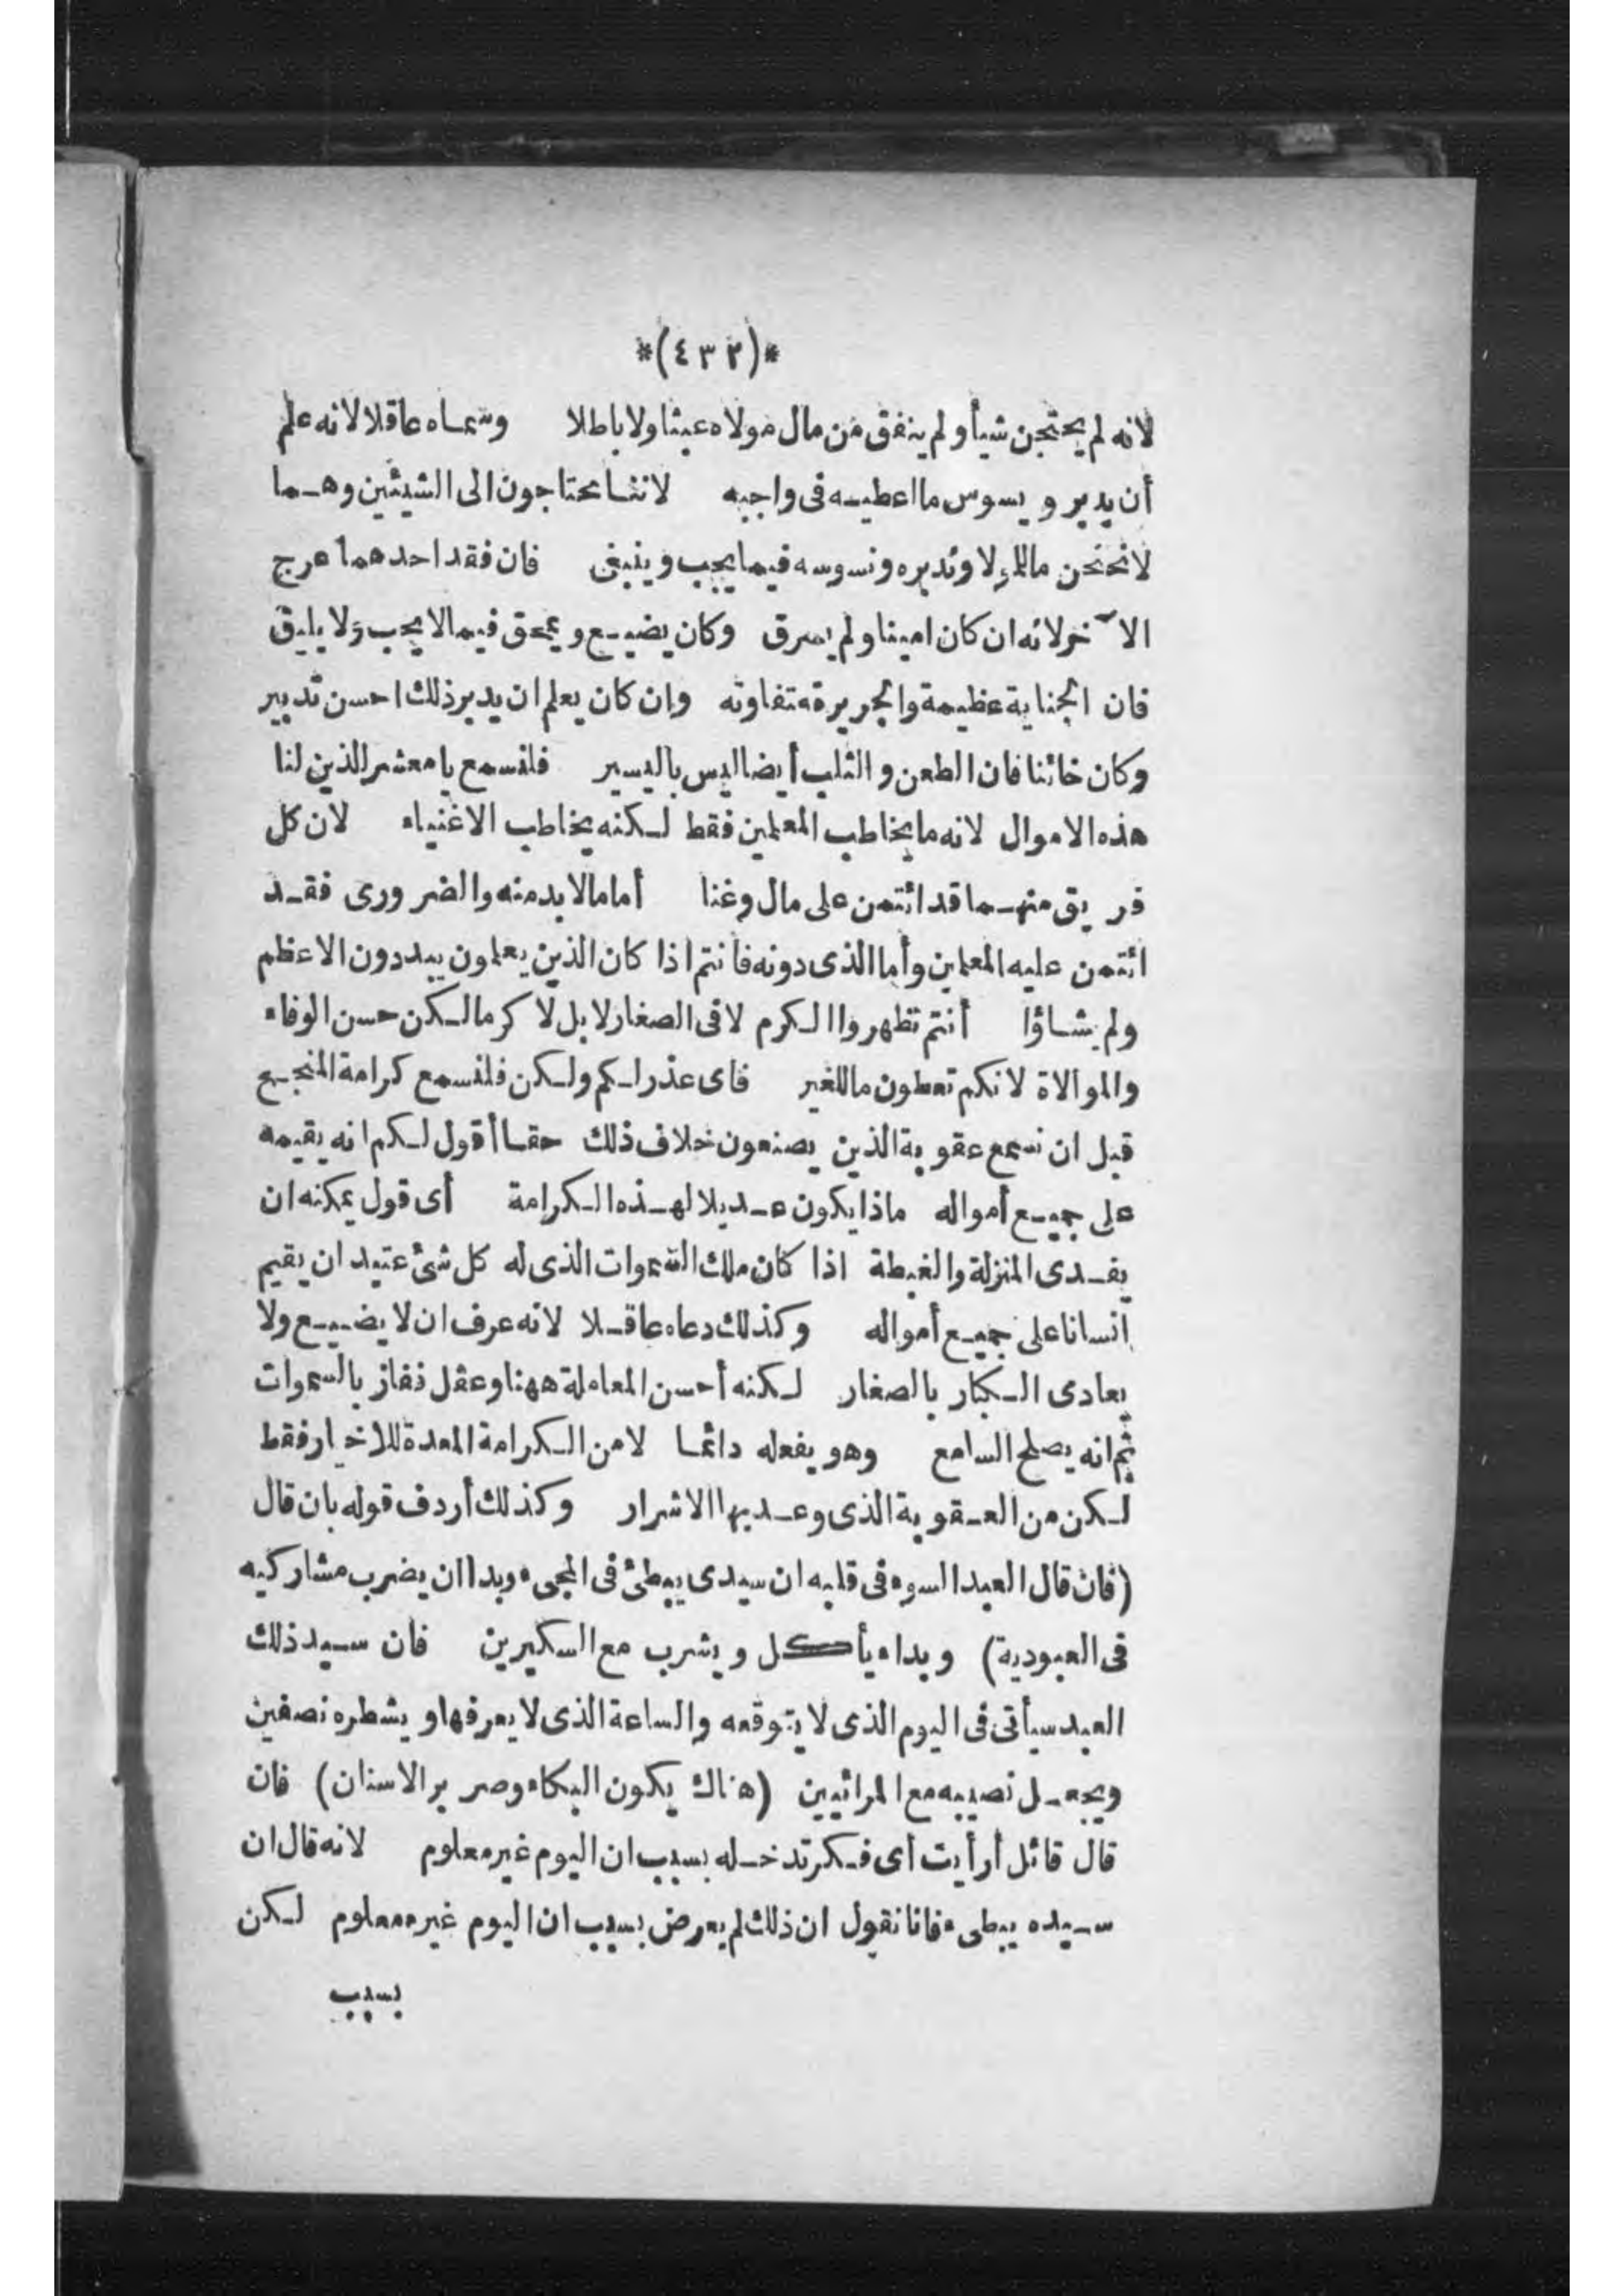 *(٤٣٢)*
لانه لم يحتجن شيأ ولم ينفق من مال مولاه عبثا ولا باطلا وسماه عاقلا لانه علم
أن يدبر ويسوس ما اعطيه فى واجبه لاننا محتاجون الى الشيئين وهما
لا نحتجن ما للمولا وندبره ونسوسه فيما يجب وينبغى فان فقد احدهما عرج
الآخر لانه ان كان امينا ولم يسرق وكان يضيع ويمحق فيما لا يجب ولا يليق
فان الجناية عظيمة والجريرة متفاوته وان كان يعلم ان يدبر ذلك احسن تدبير
وكان خائنا فان الطعن والثلب أيضا ليس باليسير فلنسمع يا معشر الذين لنا
هذه الاموال لانه ما يخاطب المعلمين فقط لكنه يخاطب الاغنياء لان كل
فريق منهما قد ائتمن على مال وغنا أما ما لا بد منه والضرورى فقد
ائتمن عليه المعلمين وأما الذى دونه فانتم اذا كان الذين يعلمون يبددون الاعظم
ولم يشاؤا أنتم تظهروا الكرم لا فى الصغار لا بل لا كرما لكن حسن الوفاء
والموالاة لانكم تعطون ما للغير فاى عذر لكم ولكن فلنسمع كرامة المنجح
قبل ان نسمع عقوبة الذين يصنعون خلاف ذلك حقا أقول لكم انه يقيمه
على جميع أمواله ماذا يكون عديلا لهذه الكرامة أى قول يمكنه ان
يفدى المنزلة والغبطة اذا كان ملك السموات الذى له كل شئ عتيد ان يقيم
انسانا على جميع أمواله وكذلك دعاه عاقلا لانه عرف ان لا يضيع ولا
يعادى الكبار بالصغار لكنه أحسن المعاملة ههنا وعقل ففاز بالسموات
ثم انه يصلح السامع وهو يفعله دائما لا من الكرامة المعدة للاخيار فقط
لكن من العقوبة الذى وعد بها الاشرار وكذلك أردف قوله بان قال
(فان قال العبد السوء فى قلبه ان سيدى يبطئ فى المجىء وبدا ان يضرب مشاركيه
فى العبودية) وبداء يأكل ويشرب مع السكيرين فان سيد ذلك
العبد سيأتى فى اليوم الذى لا يتوقعه والساعة الذى لا يعرفها ويشطره نصفين
ويجعل نصيبه مع المرائيين (هناك يكون البكاء وصرير الاسنان) فان
قال قائل أرأيت اى فكر تدخله بسبب ان اليوم غير معلوم لانه قال ان
سيده يبطىء فانا نقول ان ذلك لم يعرض بسبب ان اليوم غير معلوم لكن
بسبب